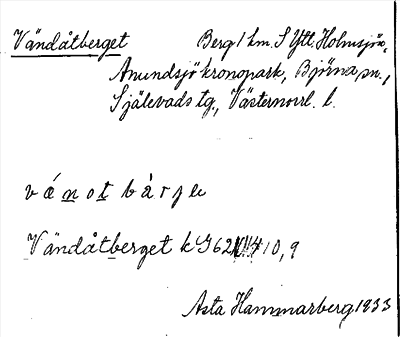 Vändåtberget Berg 1 km. S Ytt. Holmsjön,
Anundsjö kronopark, Björna sn.,
Själevads tg., Västernorrl. l.
v ǽ n o t b à r j e
Vändåtberget k G 62 10,9
Asta Hammarberg 1933